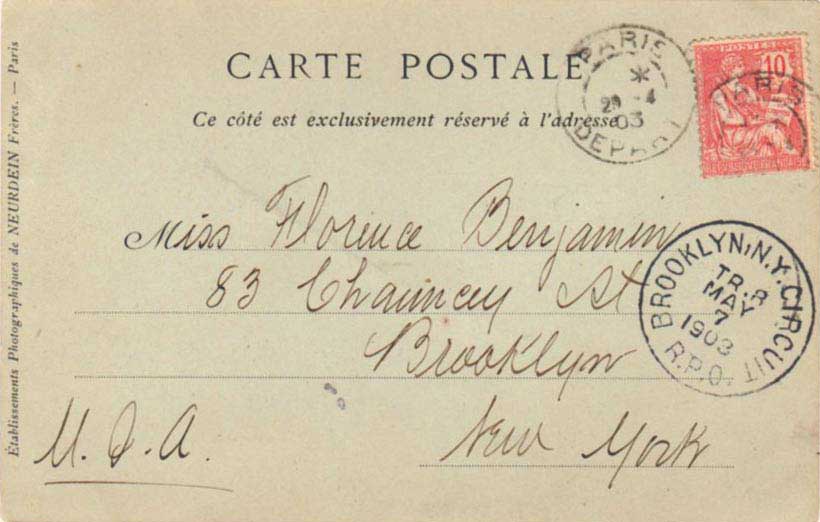 CARTE POSTALE
Ce côté est exclusivement réservé à l'adresse
Établissements Photographiques de NEURDEIN Frères. — Paris
PARIS
4
03
DEPART
POSTES
10
PARIS
Miss Florence Benjamin
83 Chauncey St
Brooklyn
New York
U. S. A.
BROOKLYN, N.Y. CIRCUIT
TR. 8
MAY
7
1903
R.P.O.